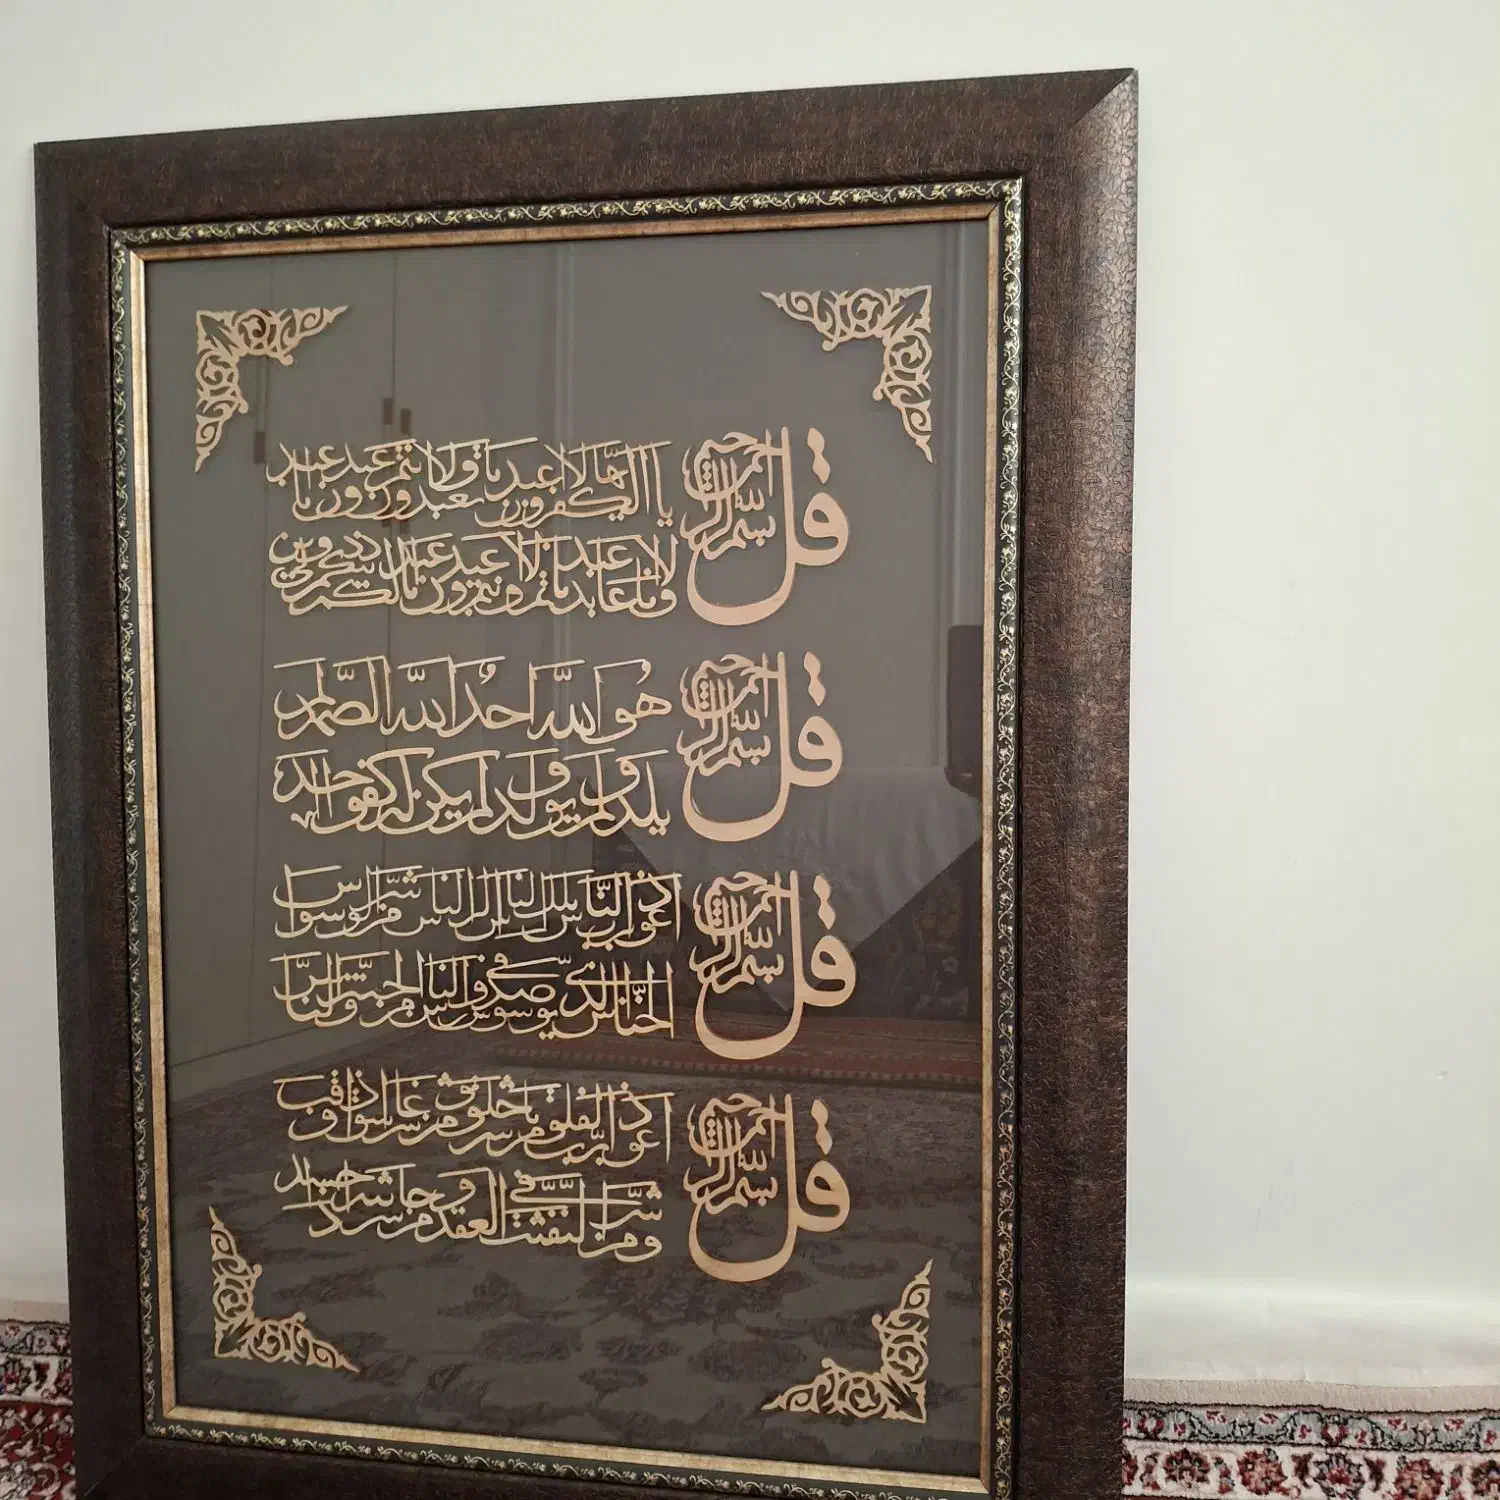 قل بسم الله الرحمن الرحيم
يا ايها الكفرون لا اعبد ما تعبدون ولا انتم عبدون ما اعبد
ولا انا عابد ما عبدتم ولا انتم عبدون ما اعبد لكم دينكم ولي دين
قل بسم الله الرحمن الرحيم
هو الله احد الله الصمد لم
يلد ولم يولد ولم يكن له كفوا احد
قل بسم الله الرحمن الرحيم
اعوذ برب الناس ملك الناس اله الناس من شر الوسواس
الخناس الذي يوسوس في صدور الناس من الجنة والناس
قل بسم الله الرحمن الرحيم
اعوذ برب الفلق من شر ما خلق ومن شر غاسق اذا وقب
ومن شر النفثت في العقد ومن شر حاسد اذا حسد